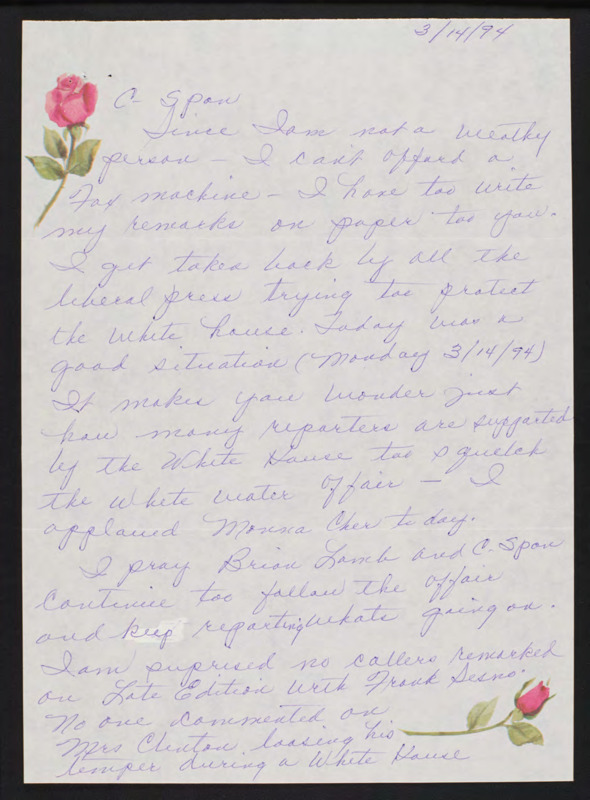 3/14/94
C-Span
Since I am not a weathy
person - I can't afford a
Fax machine - I have too write
my remarks on paper too you.
I get taken back by all the
liberal press trying too protect
the White house. Today was a
good situation (Monday 3/14/94)
It makes you wonder just
how many reporters are supported
by the White House too squelch
the White water affair - I
applaued Monna Cher to day.
I pray Brian Lamb and C. Span
continue too follow the affair
and keep reporting whats going on.
I am suprised no callers remarked
on Late Edition with Frank Sesno.
No one commented on
Mrs Clinton loosing his
temper during a White House